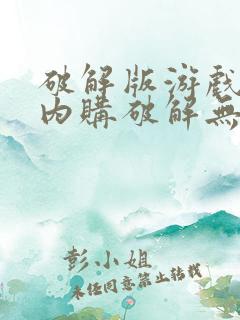 破解版游戏
内購破解無
彭小姐
未经同意禁止转载